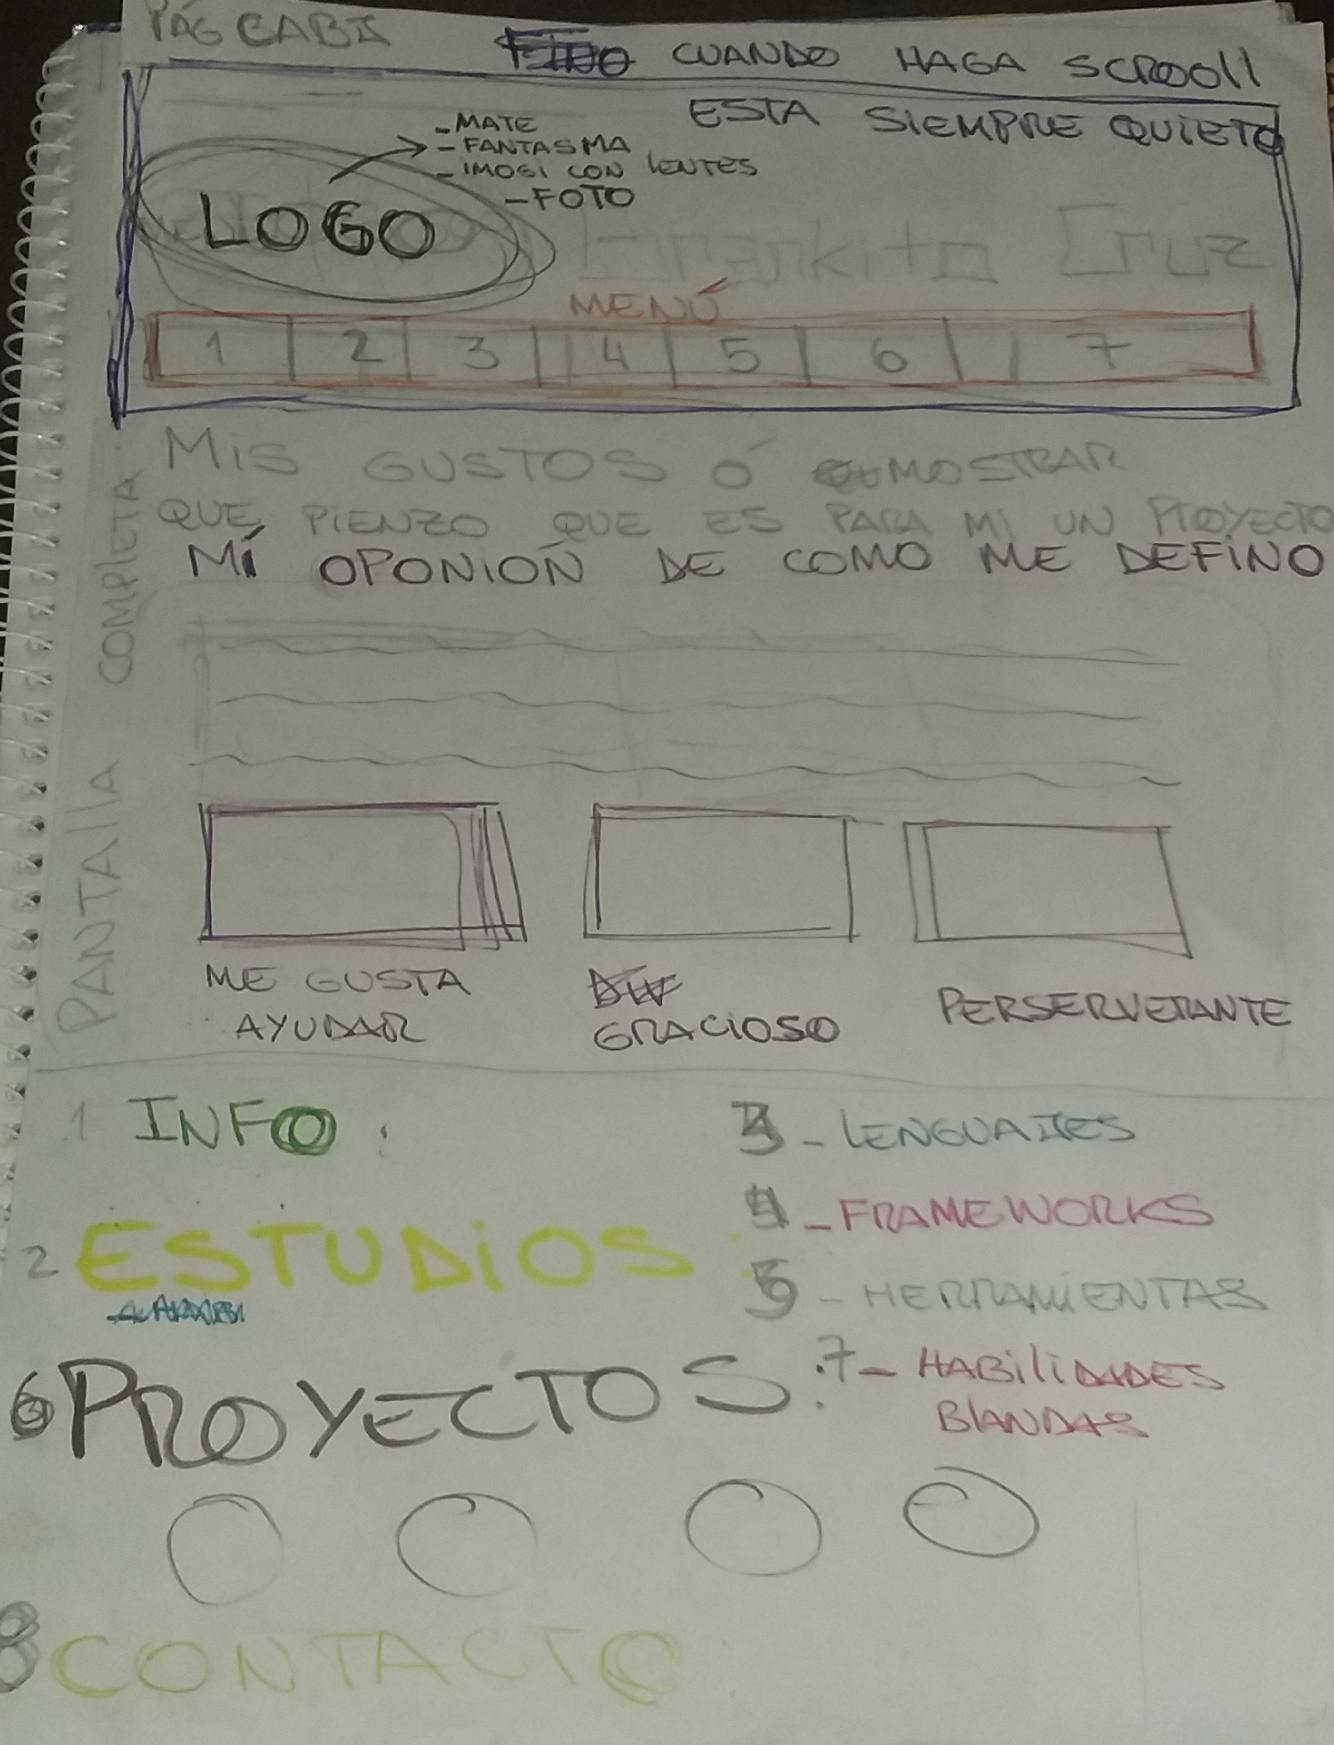 PÁG CABA
CUANDO HAGA SCROOll
ESTA SIEMPRE QUIETO
-MATE
-FANTASMA
-IMOGI CON LENTES
-FOTO
LOGO
Frankito Cruz
MENÚ
1 2 3 4 5 6 7
MIS GUSTOS Ó MOSTRAR
QUE PIENZO QUE ES PARA MI UN PROYECTO
MÍ OPONIOÑ DE COMO ME DEFINO
PANTAllA COMPLETA
ME GUSTA
AYUDAR
GRACIOSO
PERSERVERANTE
1 INFO:
2 ESTUDIOS:
3 - LENGUAJES
4 - FRAMEWORKS
5 - HERRAMIENTAS
6 PROYECTOS:
7 - HABiliDADES
BlANDAS
8 CONTACTO: